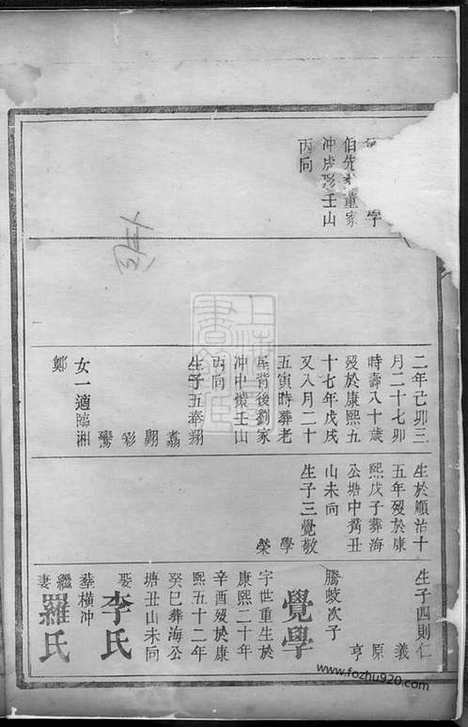 學
伯先董家
冲戌形壬山
丙向
二年己卯三
月二十七卯
時壽八十歲
歿於康熙五
十七年戊戌
又八月二十
五寅時葬老
屋背後劉家
冲中懷壬山
丙向
生子五奉翔
翥
翾
彩
鸞
女一適臨湘
鄭
生於順治十
五年歿於康
熙戊子葬海
公塘中嘴丑
山未向
生子三覺敬
學
榮
生子四則仁
義
原
亨
騰蛟次子
覺學
字世重生於
康熙二十年
辛酉歿於康
熙五十二年
癸巳葬海公
塘丑山未向
娶李氏
葬橫冲
繼妻羅氏
www.fozhu920.com